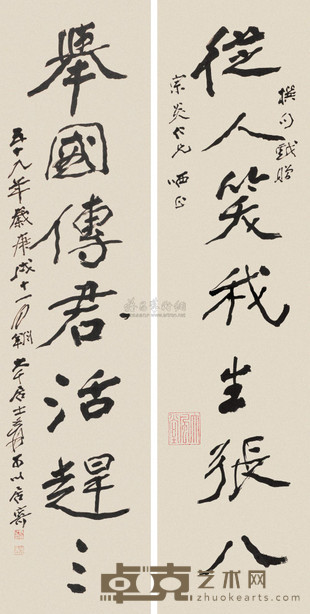 從人笑我生張八
撰句戲贈
宗炎仁兄 哂正
舉國傳君活趙三
五十九年歲庚戌十一月朔大千居士爰可以居
卓克艺术网
www.zhuokearts.com